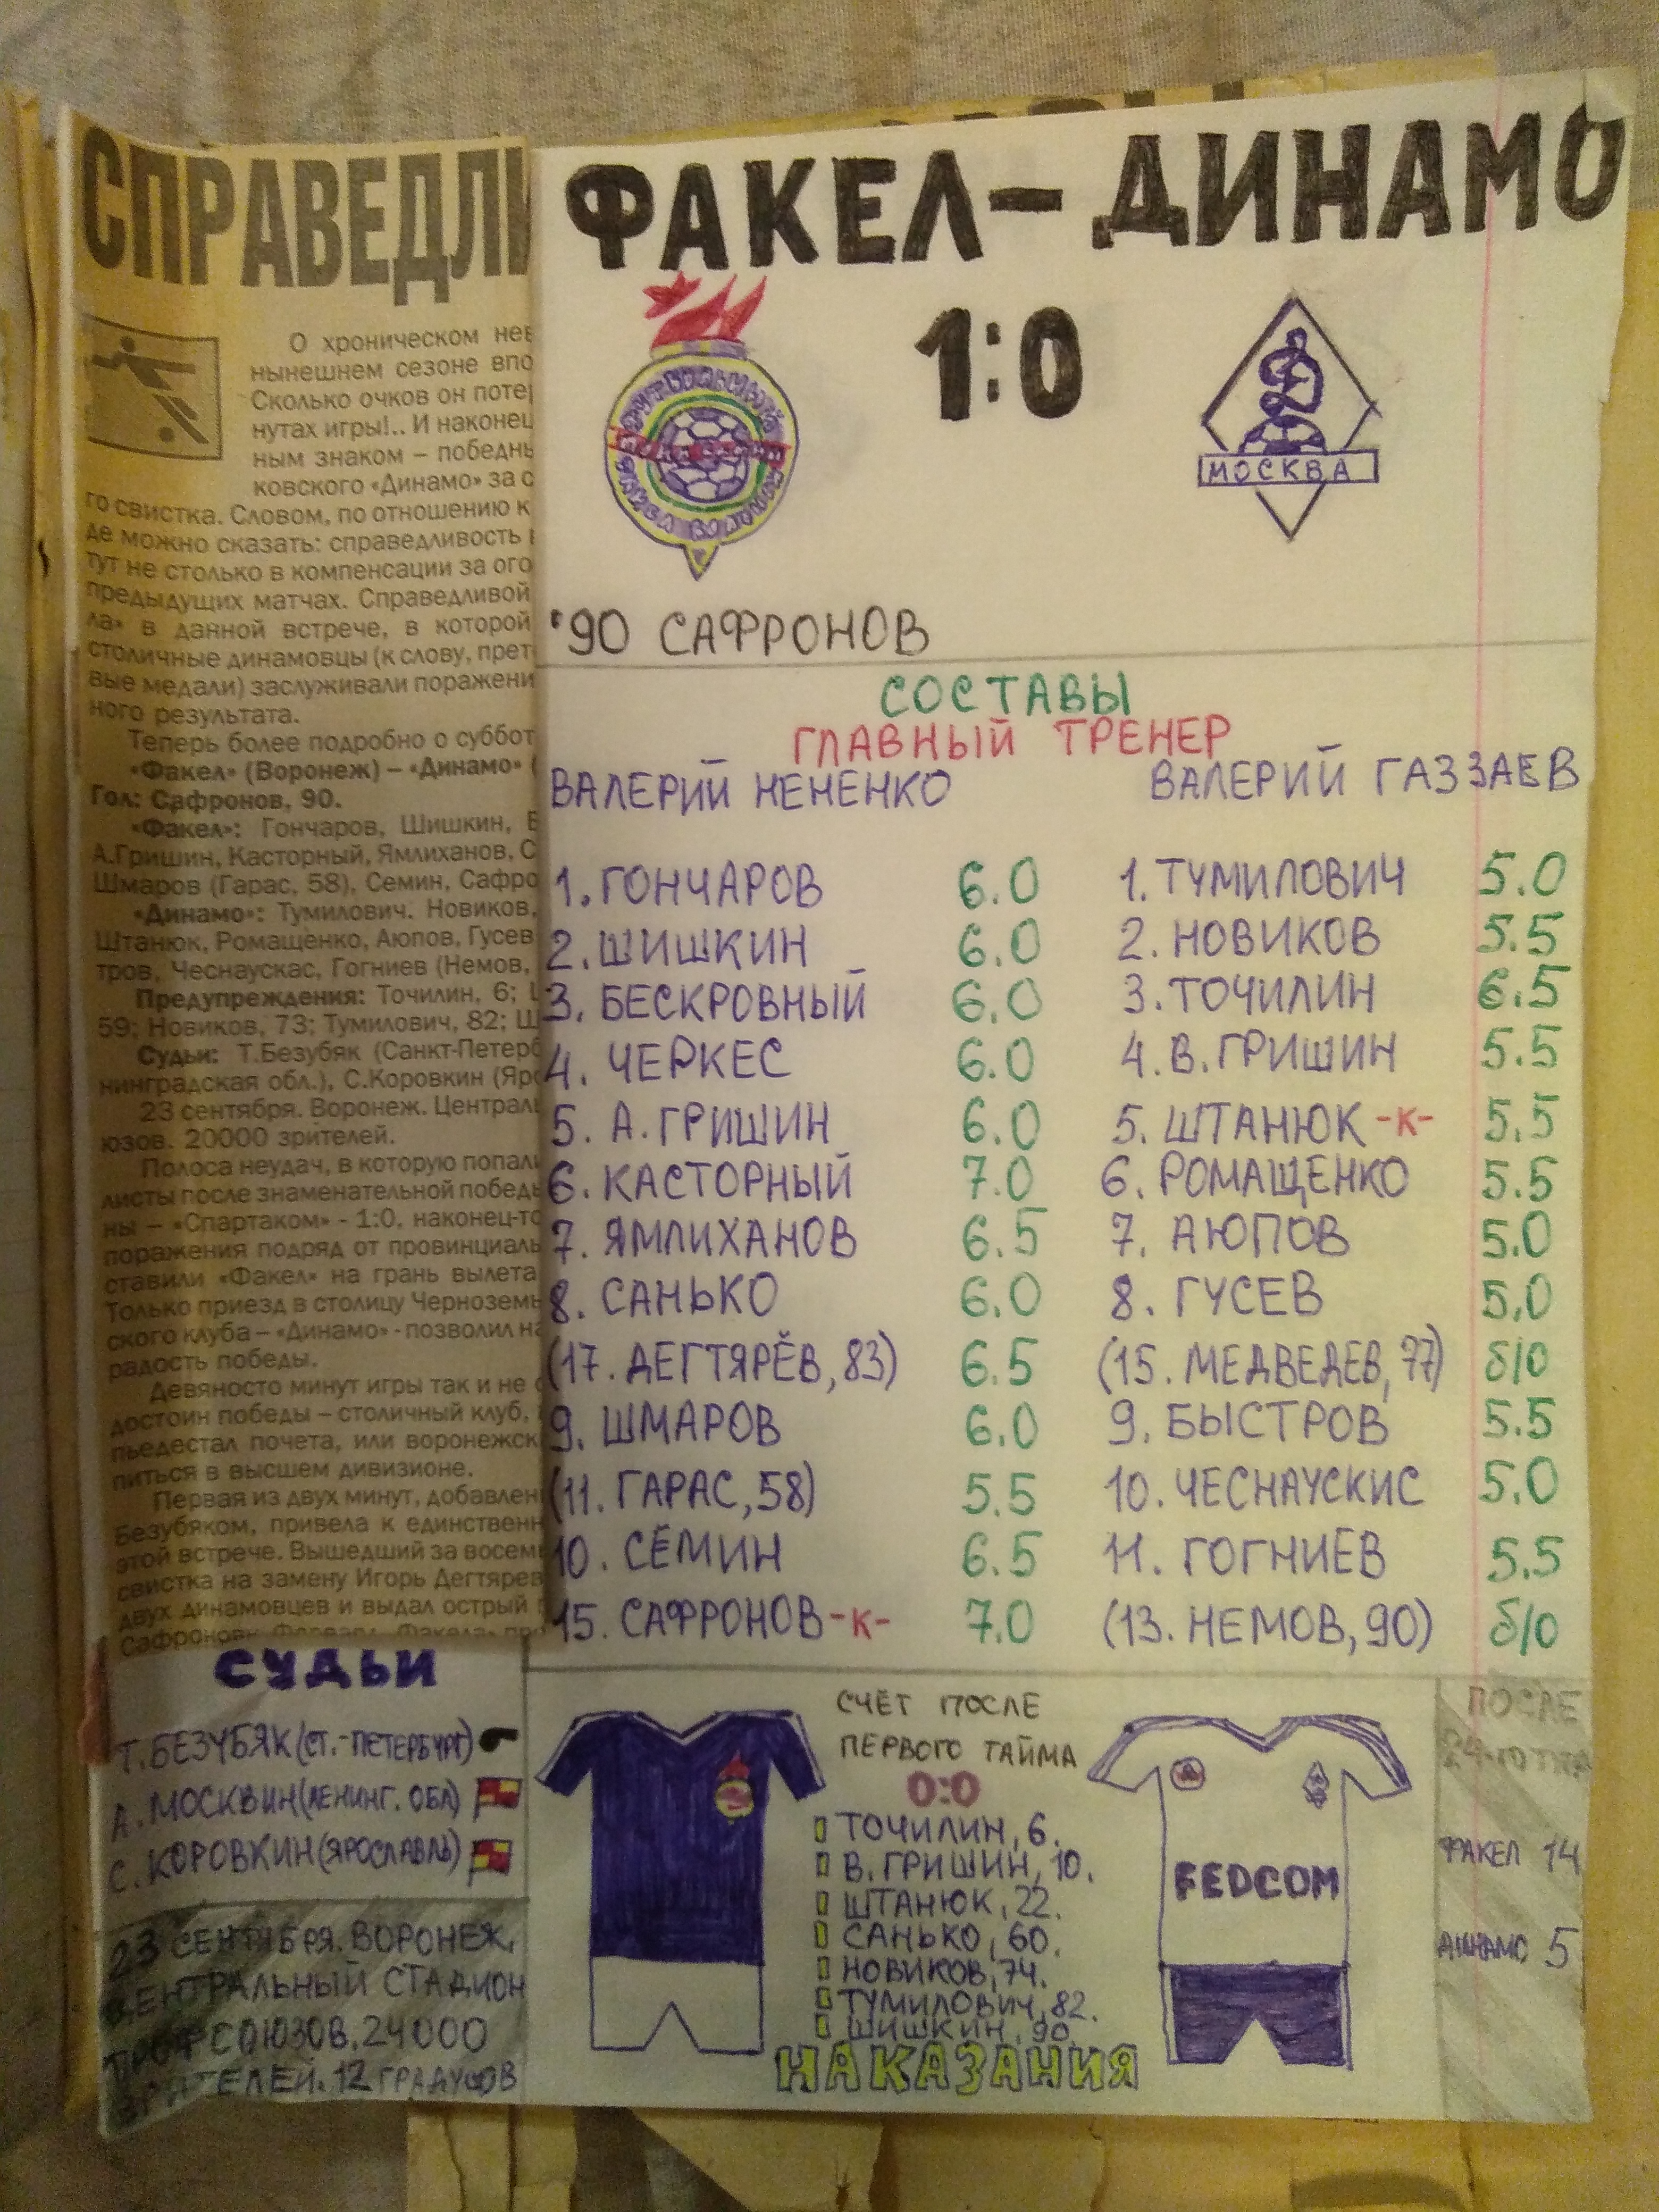 СПРАВЕДЛИ
О хроническом нев
нынешнем сезоне впо
Сколько очков он поте
нутах игры!.. И наконец
ным знаком – победны
ковского «Динамо» за с
го свистка. Словом, по отношению к
де можно сказать: справедливость
тут не столько в компенсации за ого
предыдущих матчах. Справедливой
ла» в данной встрече, в которой
столичные динамовцы (к слову, прет
вые медали) заслуживали поражени
ного результата.
Теперь более подробно о суббот
«Факел» (Воронеж) – «Динамо» (
Гол: Сафронов, 90.
«Факел»: Гончаров, Шишкин, Б
А.Гришин, Касторный, Ямлиханов, С
Шмаров (Гарас, 58), Семин, Сафро
«Динамо»: Тумилович. Новиков,
Штанюк, Ромащенко, Аюпов, Гусев
тров, Чеснаускас, Гогниев (Немов,
Предупреждения: Точилин, 6;
59; Новиков, 73; Тумилович, 82; Ш
Судьи: Т.Безубяк (Санкт-Петерб
нинградская обл.), С.Коровкин (Яро
23 сентября. Воронеж. Централь
юзов. 20000 зрителей.
Полоса неудач, в которую попали
листы после знаменательной победы
ны – «Спартаком» - 1:0, наконец-то
поражения подряд от провинциаль
ставили «Факел» на грань вылета
Только приезд в столицу Черноземь
ского клуба – «Динамо» - позволил на
радость победы.
Девяносто минут игры так и не
достоин победы – столичный клуб,
пьедестал почета, или воронежск
питься в высшем дивизионе.
Первая из двух минут, добавлен
Безубяком, привела к единственн
этой встрече. Вышедший за восемь
свистка на замену Игорь Дегтярев
двух динамовцев и выдал острый п
ФАКЕЛ – ДИНАМО
1:0
ФУТБОЛЬНЫЙ
ФАКЕЛ ВОРОНЕЖ
Д
МОСКВА
'90 САФРОНОВ
СОСТАВЫ
ГЛАВНЫЙ ТРЕНЕР
ВАЛЕРИЙ НЕНЕНКО ВАЛЕРИЙ ГАЗЗАЕВ
1. ГОНЧАРОВ 6.0 1. ТУМИЛОВИЧ 5.0
2. ШИШКИН 6.0 2. НОВИКОВ 5.5
3. БЕСКРОВНЫЙ 6.0 3. ТОЧИЛИН 6.5
4. ЧЕРКЕС 6.0 4. В. ГРИШИН 5.5
5. А. ГРИШИН 6.0 5. ШТАНЮК -К- 5.5
6. КАСТОРНЫЙ 7.0 6. РОМАЩЕНКО 5.5
7. ЯМЛИХАНОВ 6.5 7. АЮПОВ 5.0
8. САНЬКО 6.0 8. ГУСЕВ 5.0
(17. ДЕГТЯРЁВ, 83) 6.5 (15. МЕДВЕДЕВ, 77) б/о
9. ШМАРОВ 6.0 9. БЫСТРОВ 5.5
(11. ГАРАС, 58) 5.5 10. ЧЕСНАУСКИС 5.0
10. СЁМИН 6.5 11. ГОГНИЕВ 5.5
15. САФРОНОВ -К- 7.0 (13. НЕМОВ, 90) б/о
СУДЬИ
Т. БЕЗУБЯК (СТ.-ПЕТЕРБУРГ)
А. МОСКВИН (ЛЕНИНГ. ОБЛ)
С. КОРОВКИН (ЯРОСЛАВЛЬ)
23 СЕНТЯБРЯ. ВОРОНЕЖ,
ЦЕНТРАЛЬНЫЙ СТАДИОН
ПРОФСОЮЗОВ. 24000
ЗРИТЕЛЕЙ. 12 ГРАДУСОВ
СЧЁТ ПОСЛЕ
ПЕРВОГО ТАЙМА
0:0
ТОЧИЛИН, 6.
В. ГРИШИН, 10.
ШТАНЮК, 22.
САНЬКО, 60.
НОВИКОВ, 74.
ТУМИЛОВИЧ, 82.
ШИШКИН, 90
НАКАЗАНИЯ
FEDCOM
ПОСЛЕ
24-ГО ТУРА
ФАКЕЛ 14
ДИНАМО 5